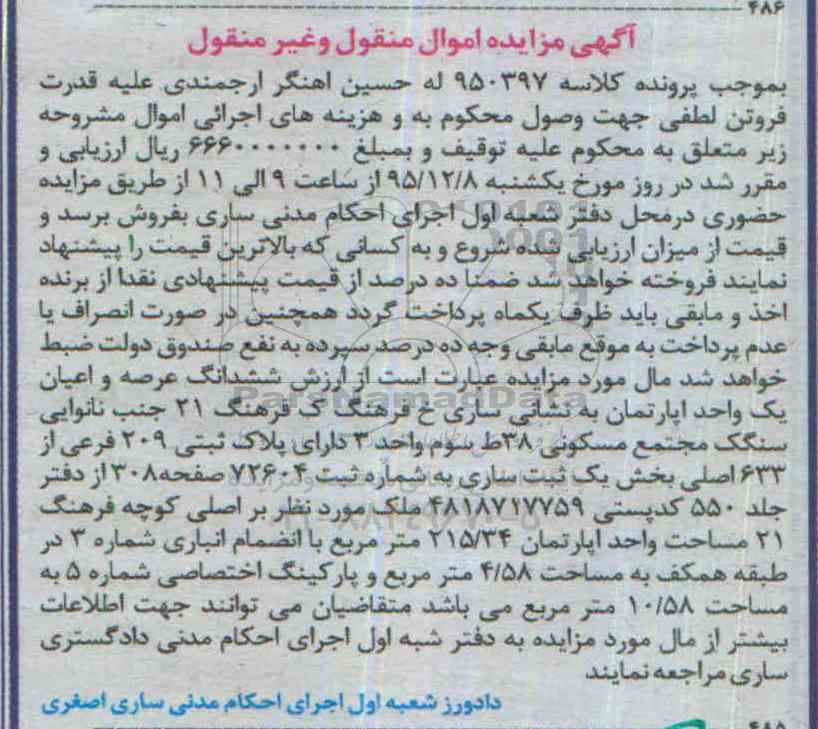 ۴۸۶
آگهی مزایده اموال منقول وغیر منقول
بموجب پرونده کلاسه ۹۵۰۳۹۷ له حسین اهنگر ارجمندی علیه قدرت
فروتن لطفی جهت وصول محکوم به و هزینه های اجرائی اموال مشروحه
زیر متعلق به محکوم علیه توقیف و بمبلغ ۶۶۶۰۰۰۰۰۰۰ ریال ارزیابی و
مقرر شد در روز مورخ یکشنبه ۹۵/۱۲/۸ از ساعت ۹ الی ۱۱ از طریق مزایده
حضوری درمحل دفتر شعبه اول اجرای احکام مدنی ساری بفروش برسد و
قیمت از میزان ارزیابی شده شروع و به کسانی که بالاترین قیمت را پیشنهاد
نمایند فروخته خواهد شد ضمنا ده درصد از قیمت پیشنهادی نقدا از برنده
اخذ و مابقی باید ظرف یکماه پرداخت گردد همچنین در صورت انصراف یا
عدم پرداخت به موقع مابقی وجه ده درصد سپرده به نفع صندوق دولت ضبط
خواهد شد مال مورد مزایده عبارت است از ارزش ششدانگ عرصه و اعیان
یک واحد اپارتمان به نشانی ساری خ فرهنگ ک فرهنگ ۲۱ جنب نانوایی
سنگک مجتمع مسکونی ۳۸ط سوم واحد ۳ دارای پلاک ثبتی ۲۰۹ فرعی از
۶۳۳ اصلی بخش یک ثبت ساری به شماره ثبت ۷۲۶۰۴ صفحه۳۰۸ از دفتر
جلد ۵۵۰ کدپستی ۴۸۱۸۷۱۷۷۵۹ ملک مورد نظر بر اصلی کوچه فرهنگ
۲۱ مساحت واحد اپارتمان ۲۱۵/۳۴ متر مربع با انضمام انباری شماره ۳ در
طبقه همکف به مساحت ۴/۵۸ متر مربع و پارکینگ اختصاصی شماره ۵ به
مساحت ۱۰/۵۸ متر مربع می باشد متقاضیان می توانند جهت اطلاعات
بیشتر از مال مورد مزایده به دفتر شبه اول اجرای احکام مدنی دادگستری
ساری مراجعه نمایند
دادورز شعبه اول اجرای احکام مدنی ساری اصغری
۴۸۵
ParsNamadData